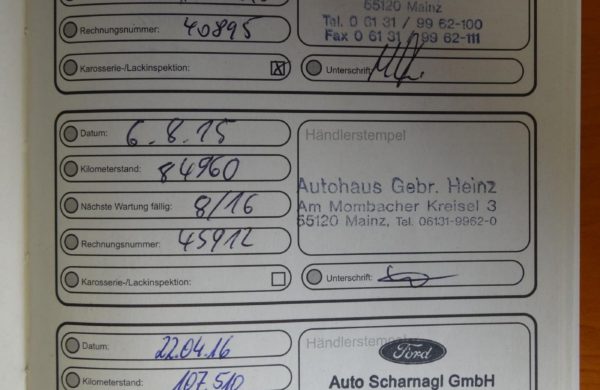 55120 Mainz
Rechnungsnummer: 40895
Tel. 0 61 31 / 99 62-100
Fax 0 61 31 / 99 62-111
Karosserie-/Lackinspektion: X
Unterschrift:
Datum: 6.8.15
Händlerstempel
Kilometerstand: 84960
Autohaus Gebr. Heinz
Nächste Wartung fällig: 8/16
Am Mombacher Kreisel 3
55120 Mainz, Tel. 06131-9962-0
Rechnungsnummer: 45912
Karosserie-/Lackinspektion:
Unterschrift:
Datum: 22.04.16
Händlerstempel
Ford
Kilometerstand: 107.510
Auto Scharnagl GmbH